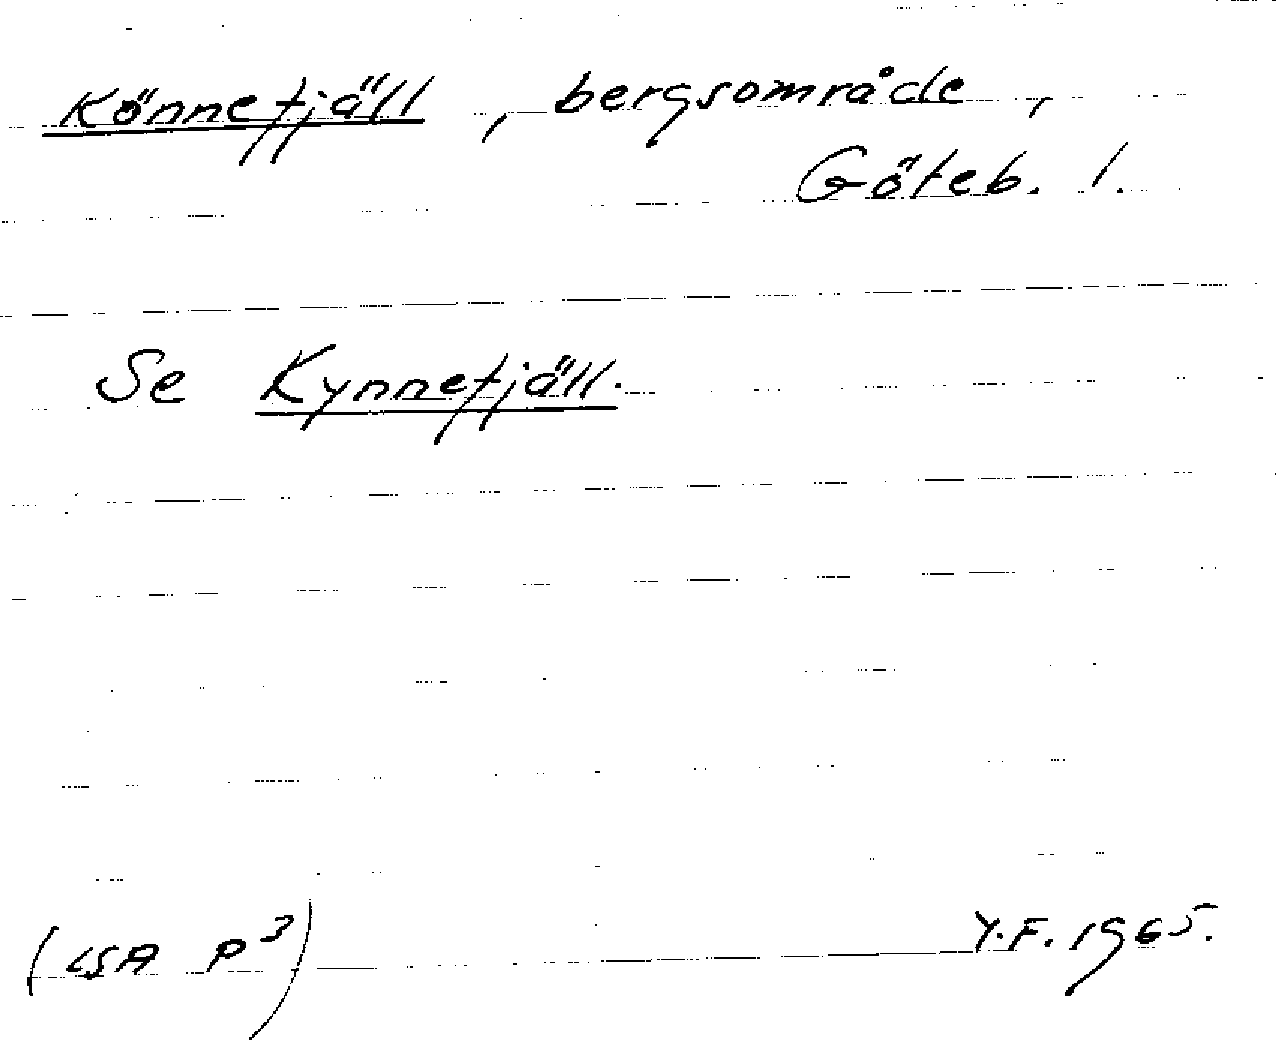 Könnefjäll, bergsområde,
Göteb. l.
Se Kynnefjäll.
(LSA P³) Y.F. 1965.